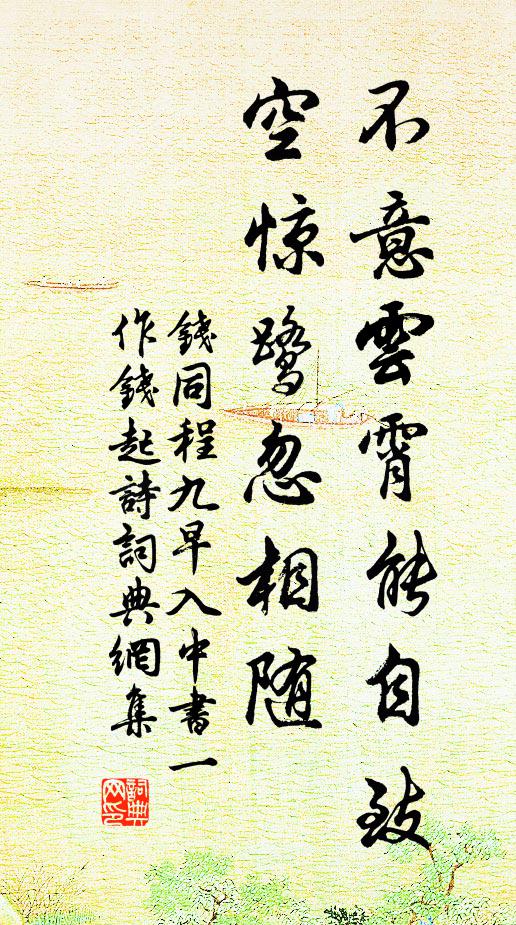 不意雲霄能自致
空惊鹭忽相随
錢同程九早入中書一
作錢起詩詞典網集
詞典网印